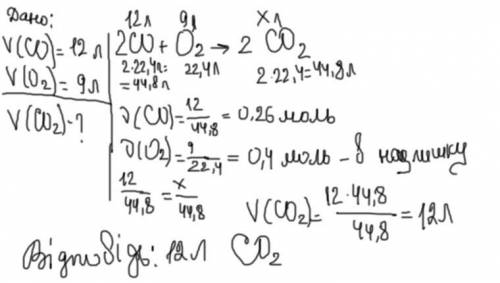 Дано:
V(CO)=12 л
V(O₂)=9 л
V(CO₂)-?
12 л 9 л x л
2CO + O₂ → 2 CO₂
2·22,4 л= 22,4 л 2·22,4=44,8 л
=44,8 л
ν(CO)=12/44,8=0,26 моль
ν(O₂)=9/22,4=0,4 моль – в надлишку
12/44,8=x/44,8
V(CO₂)=12·44,8/44,8=12 л
Відповідь: 12 л CO₂